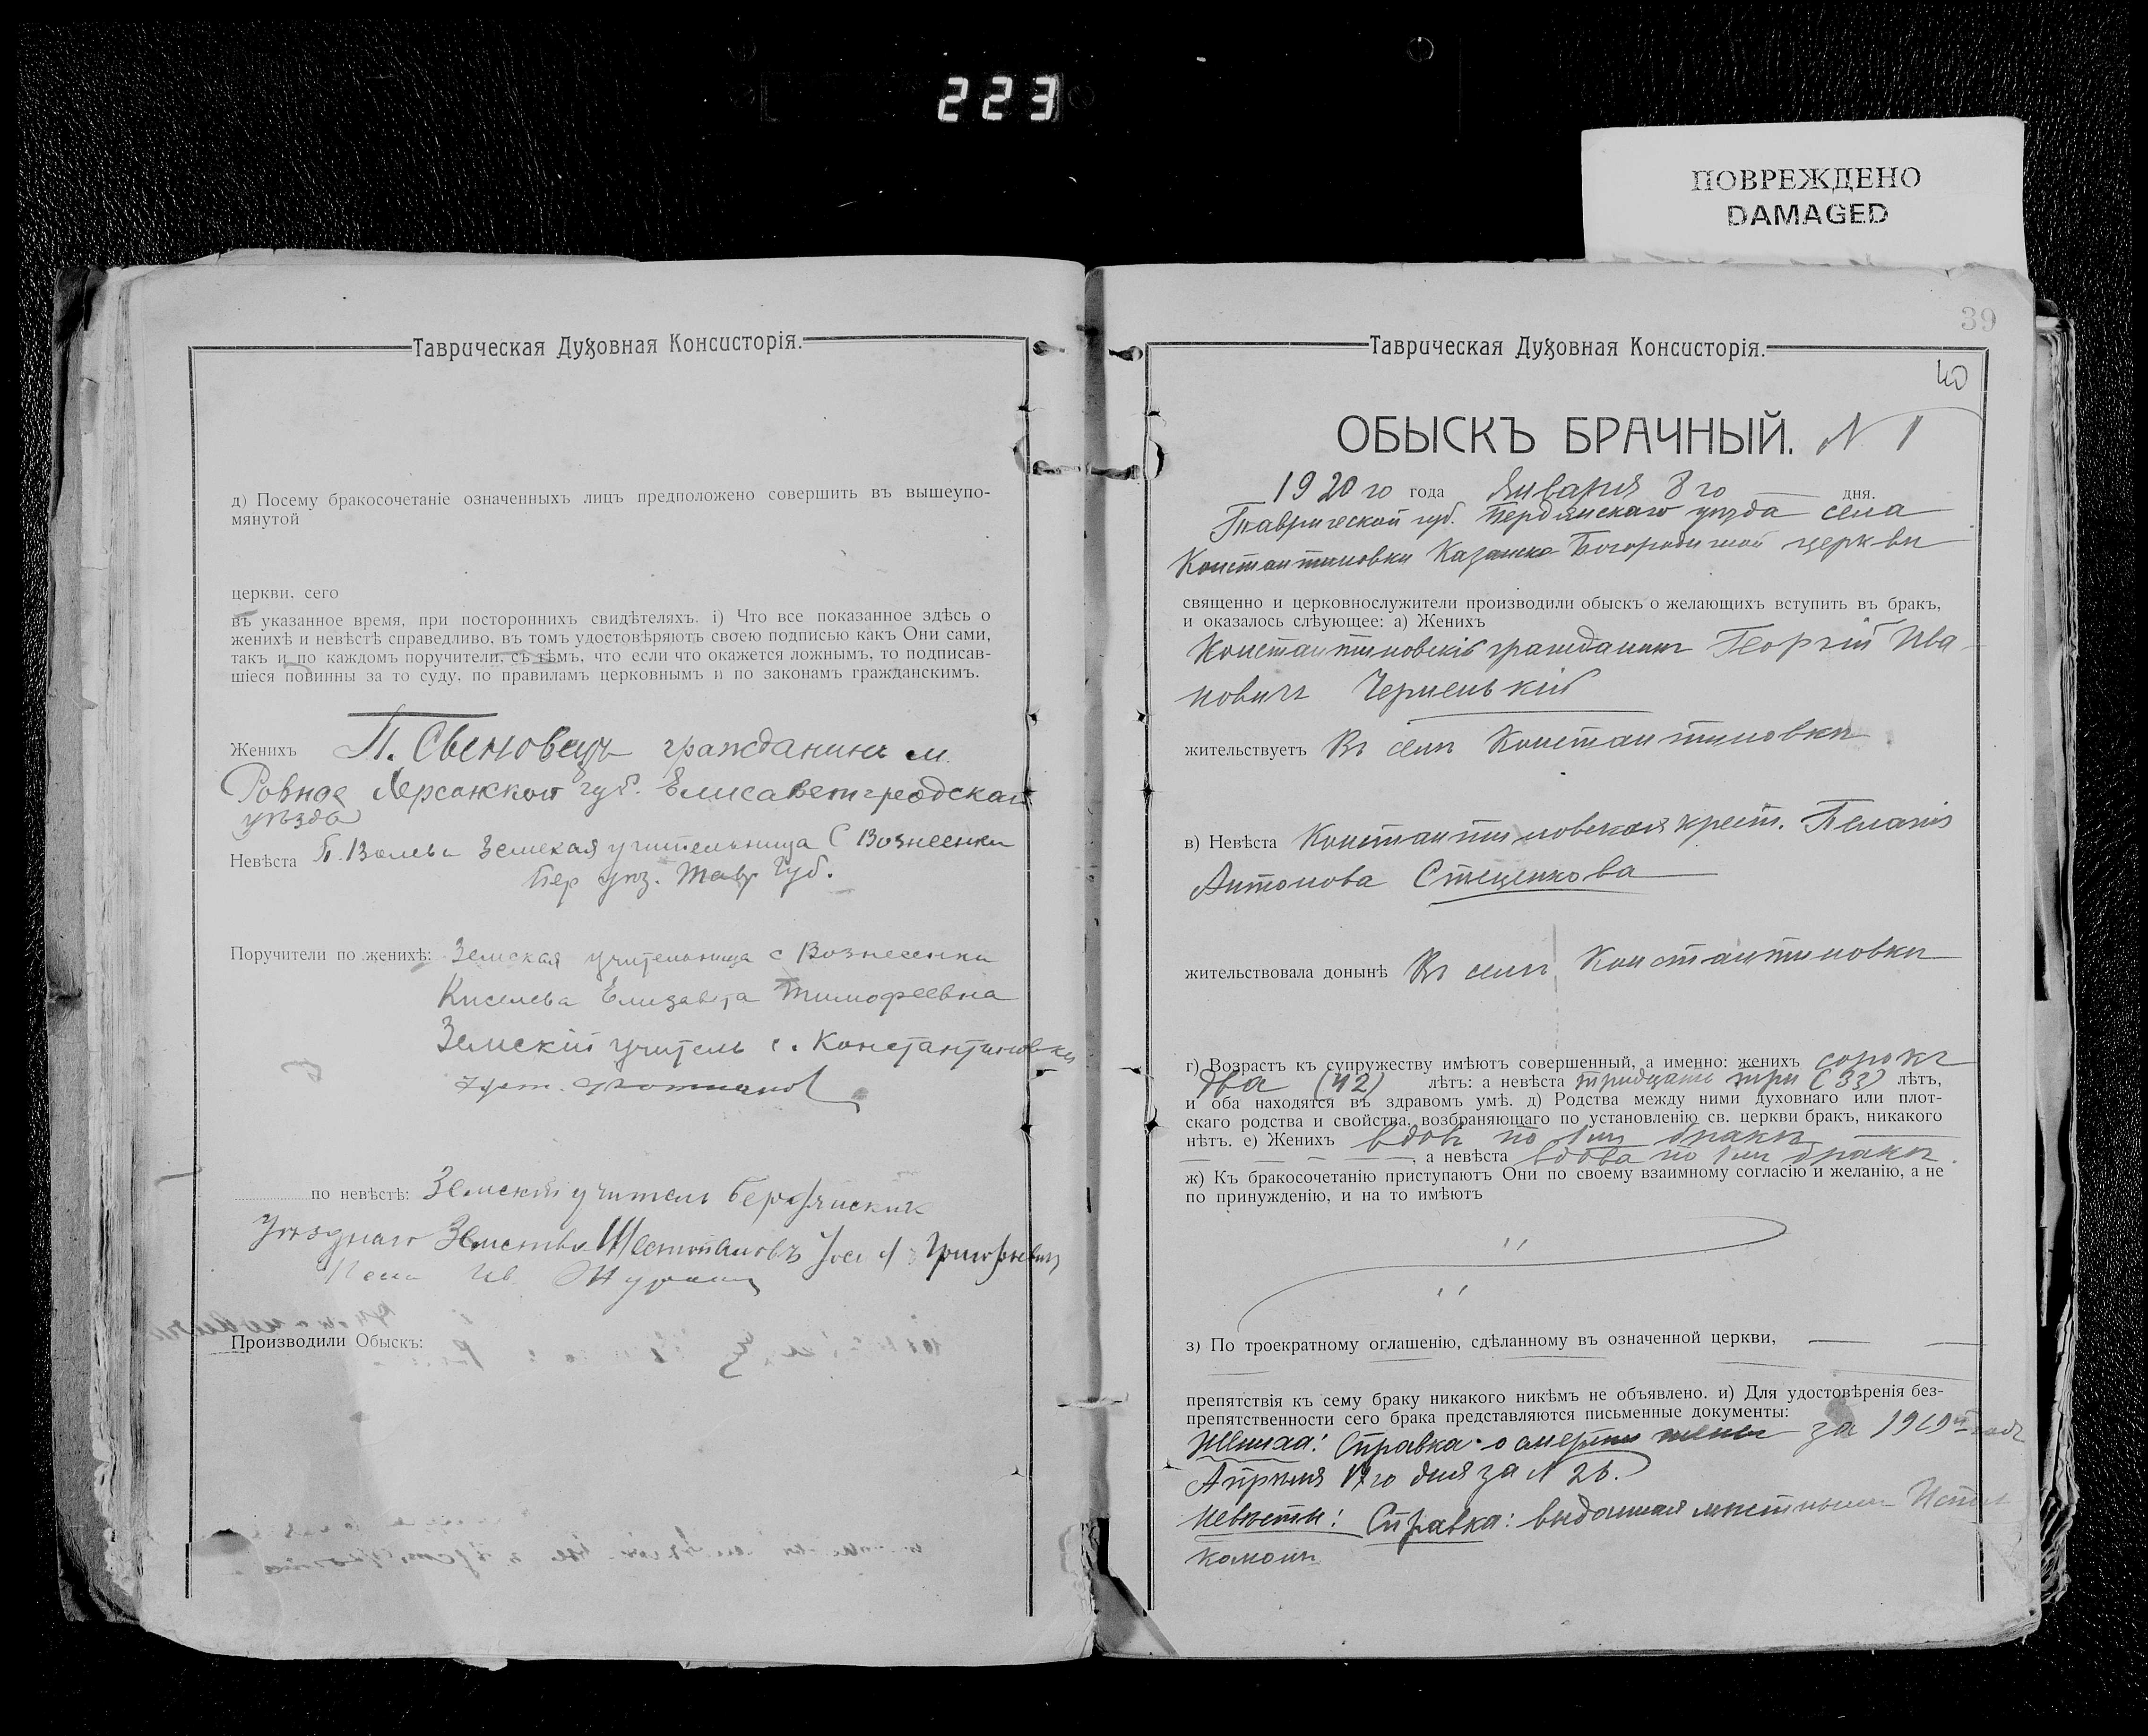 223
ПОВРЕЖДЕНО
DAMAGED
Таврическая Духовная Консисторія.
д) Посему бракосочетаніе означенныхъ лицъ предположено совершить въ вышеупо-
мянутой
церкви. сего
въ указанное время, при постороннихъ свидѣтеляхъ. і) Что все показанное здѣсь о
женихѣ и невѣстѣ справедливо, въ томъ удостовѣряютъ своею подписью какъ Они сами,
такъ и по каждомъ поручители, съ тѣмъ, что если что окажется ложнымъ, то подписав-
шіеся повинны за то суду, по правиламъ церковнымъ и по законамъ гражданскимъ.
Женихъ П. гражданинъ м.
Ровное Херсонской губ. Елисаветградскаго
уѣзда
Невѣста Земская учительница с Вознесенки
Бер уѣз. Тавр Губ.
Поручители по женихѣ: Земская учительница с Вознесенки
Киселева Елизавета Тимофеевна
Земскій учитель с. Константиновки
по невѣстѣ: Земскій учитель Бердянскаго
Уѣзднаго Земства
Производили Обыскъ:
39
Таврическая Духовная Консисторія.
40
ОБЫСКЪ БРАЧНЫЙ. N 1
1920 го года Января 8 го дня.
Таврической губ. Бердянскаго уѣзда села
Константиновки Казанско Богородичной церкви
священно и церковнослужители производили обыскъ о желающихъ вступить въ бракъ,
и оказалось слѣующее: а) Женихъ
Константиновскій гражданинъ Георгій Ива
новичъ Черненькій
жительствуетъ Въ селѣ Константиновкѣ
в) Невѣста Константиновская крест. Пелагія
Антонова Стеценкова
жительствовала донынѣ Въ селѣ Константиновкѣ
г) Возрастъ къ супружеству имѣютъ совершенный, а именно: женихъ сорокъ
два (42) лѣтъ: а невѣста тридцать три (33) лѣтъ,
и оба находятся въ здравомъ умѣ. д) Родства между ними духовнаго или плот-
скаго родства и свойства, возбраняющаго по установленію св. церкви бракъ, никакого
нѣтъ. е) Женихъ вдовъ по 1мъ бракѣ
, а невѣста вдова по 1мъ бракѣ.
ж) Къ бракосочетанію приступаютъ Они по своему взаимному согласію и желанію, а не
по принужденію, и на то имѣютъ
з) По троекратному оглашенію, сдѣланному въ означенной церкви,
препятствія къ сему браку никакого никѣмъ не объявлено. и) Для удостовѣренія без-
препятственности сего брака представляются письменные документы:
Жениха: Справка о смерти жены за 1919й годъ
Апрѣля 17го дня за N 26.
Невѣсты: Справка: выданная мѣстнымъ Испол
комомъ